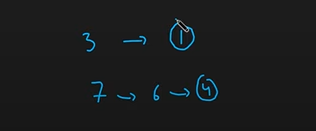 3 → 1
7 → 6 → 4